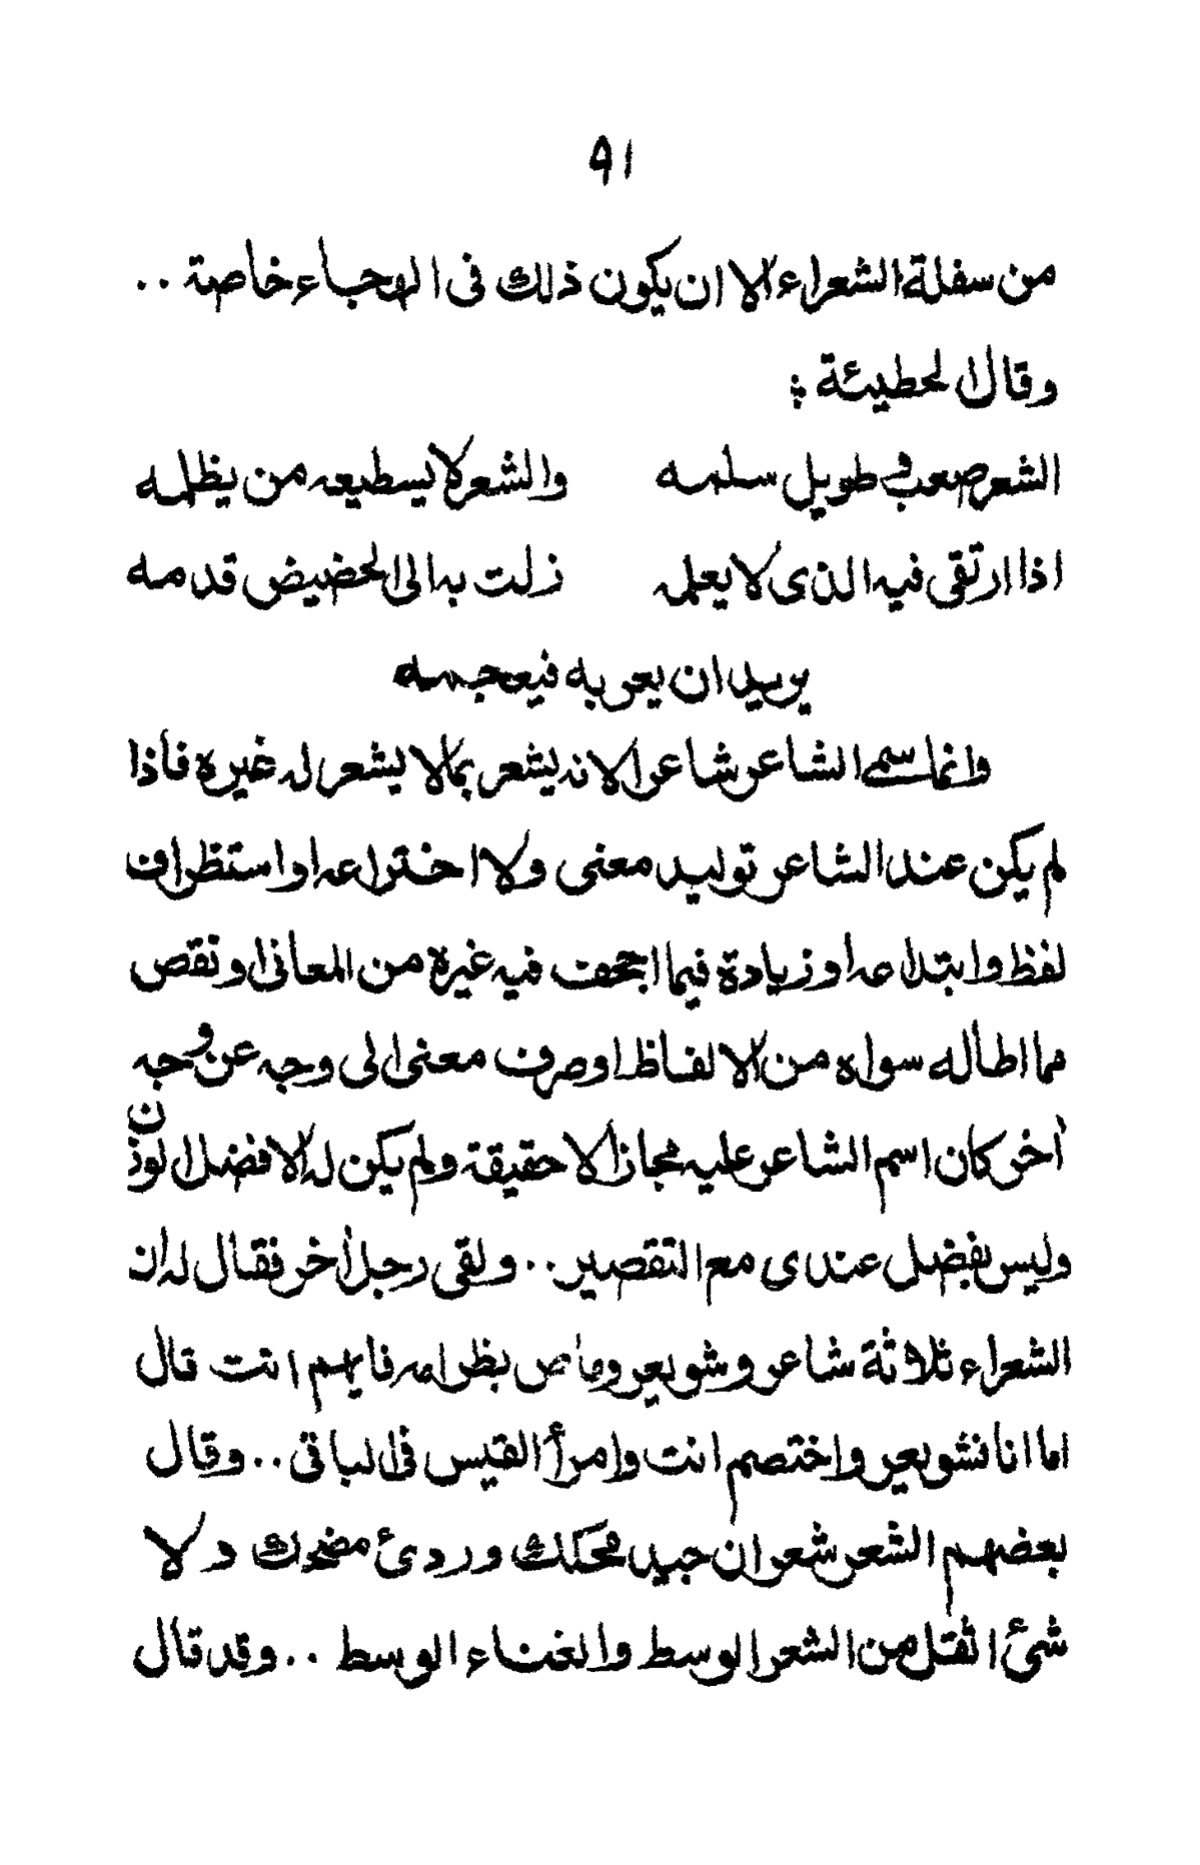 ٩١
من سفلة الشعراء الا ان يكون ذلك فى الهجاء خاصة ..
وقال الحطيئة :
الشعر صعب و طويل سلمه والشعر لا يسطيعه من يظلمه
اذا ارتقى فيه الذى لا يعلمه زلت به الى الحضيض قدمه
يريد ان يعربه فيعجمه
وانما سمى الشاعر شاعرا لانه يشعر بما لا يشعر له غيره فأذا
لم يكن عند الشاعر توليد معنى ولا اختراعه او استظراف
لفظ وابتداعه او زيادة فيما اجحف فيه غيرة من المعانى او نقص
مما اطاله سواه من الالفاظ او صرف معنى الى وجه عن وجه
أخر كان اسم الشاعر عليه مجازا لا حقيقة ولم يكن له الا فضل الوزن
وليس بفضل عندى مع التقصير .. ولقى رجل أخر فقال له ان
الشعراء ثلاثة شاعر وشويعر وماص بظر امه فايهم انت قال
اما انا فشويعر واختصم انت وامرأ القيس فى الباقى .. وقال
بعضهم الشعر شعران جيد محكك وردئ مضحك و لا
شئ اثقل من الشعر الوسط والغناء الوسط .. وقد قال